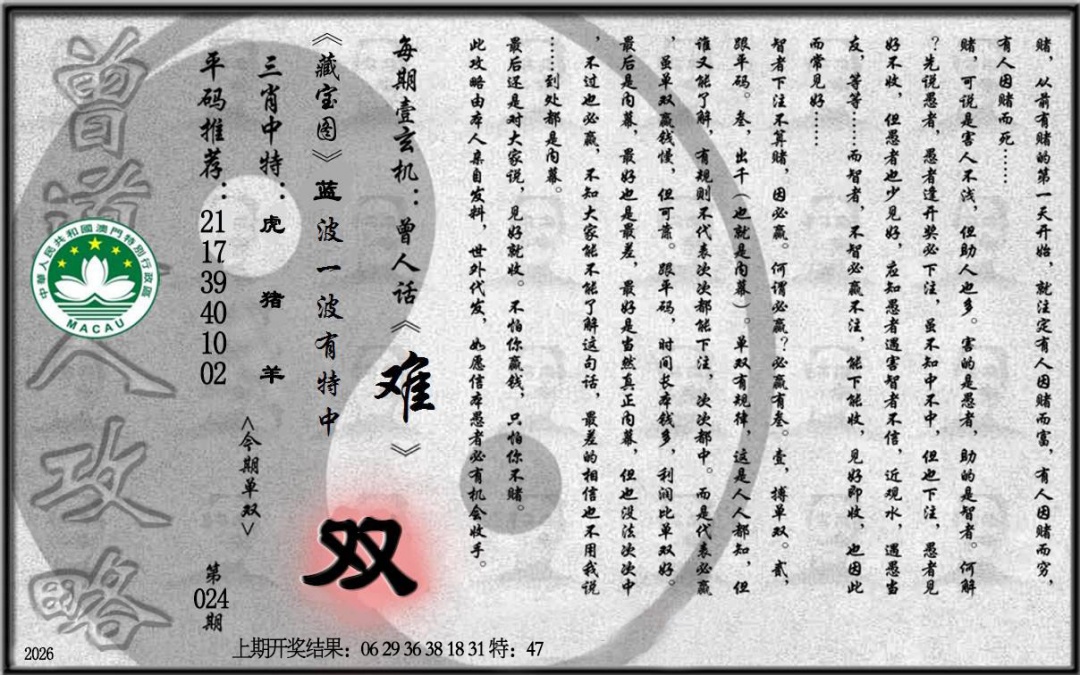 赌，从前有赌的第一天开始，就注定有人因赌而富，有人因赌而穷，
有人因赌而死……
赌，可说是害人不浅，但助人也多。害的是愚者，助的是智者。何解
？先说愚者，愚者逢开奖必下注，虽不知中不中，但也下注，愚者见
好不收，但愚者也少见好，应知愚者遇害智者不信，近观水，遇愚当
友，等等……而智者，不智必赢不注，能下能收，见好即收，也因此
而常见好……
智者下注不算赌，因必赢。何谓必赢？必赢有叁。壹，搏单双。贰，
跟平码。叁，出千（也就是内幕）。单双有规律，这是人人都知，但
谁又能了解，有规则不代表次次都能下注，次次都中。而是代表必赢
，虽单双赢钱慢，但可靠。跟平码，时间长本钱多，利润比单双好。
最后是内幕，最好也是最差，最好是当然真正内幕，但也没法次次中
，不过也必赢，不知大家能不能了解这句话，最差的相信也不用我说
……到处都是内幕。
最后还是对大家说，见好就收。不怕你赢钱，只怕你不赌。
此攻略由本人亲自发料，世外代发，如愿信本愚者必有机会收手。
每期壹玄机：曾人话《难》
《藏宝图》蓝波一波有特中
双
三肖中特：虎 猪 羊
<今期单双>
平码推荐：21 17 39 40 10 02
第024期
曾道人攻略
中華人民共和國澳門特別行政區
MACAU
2026
上期开奖结果：06 29 36 38 18 31 特：47